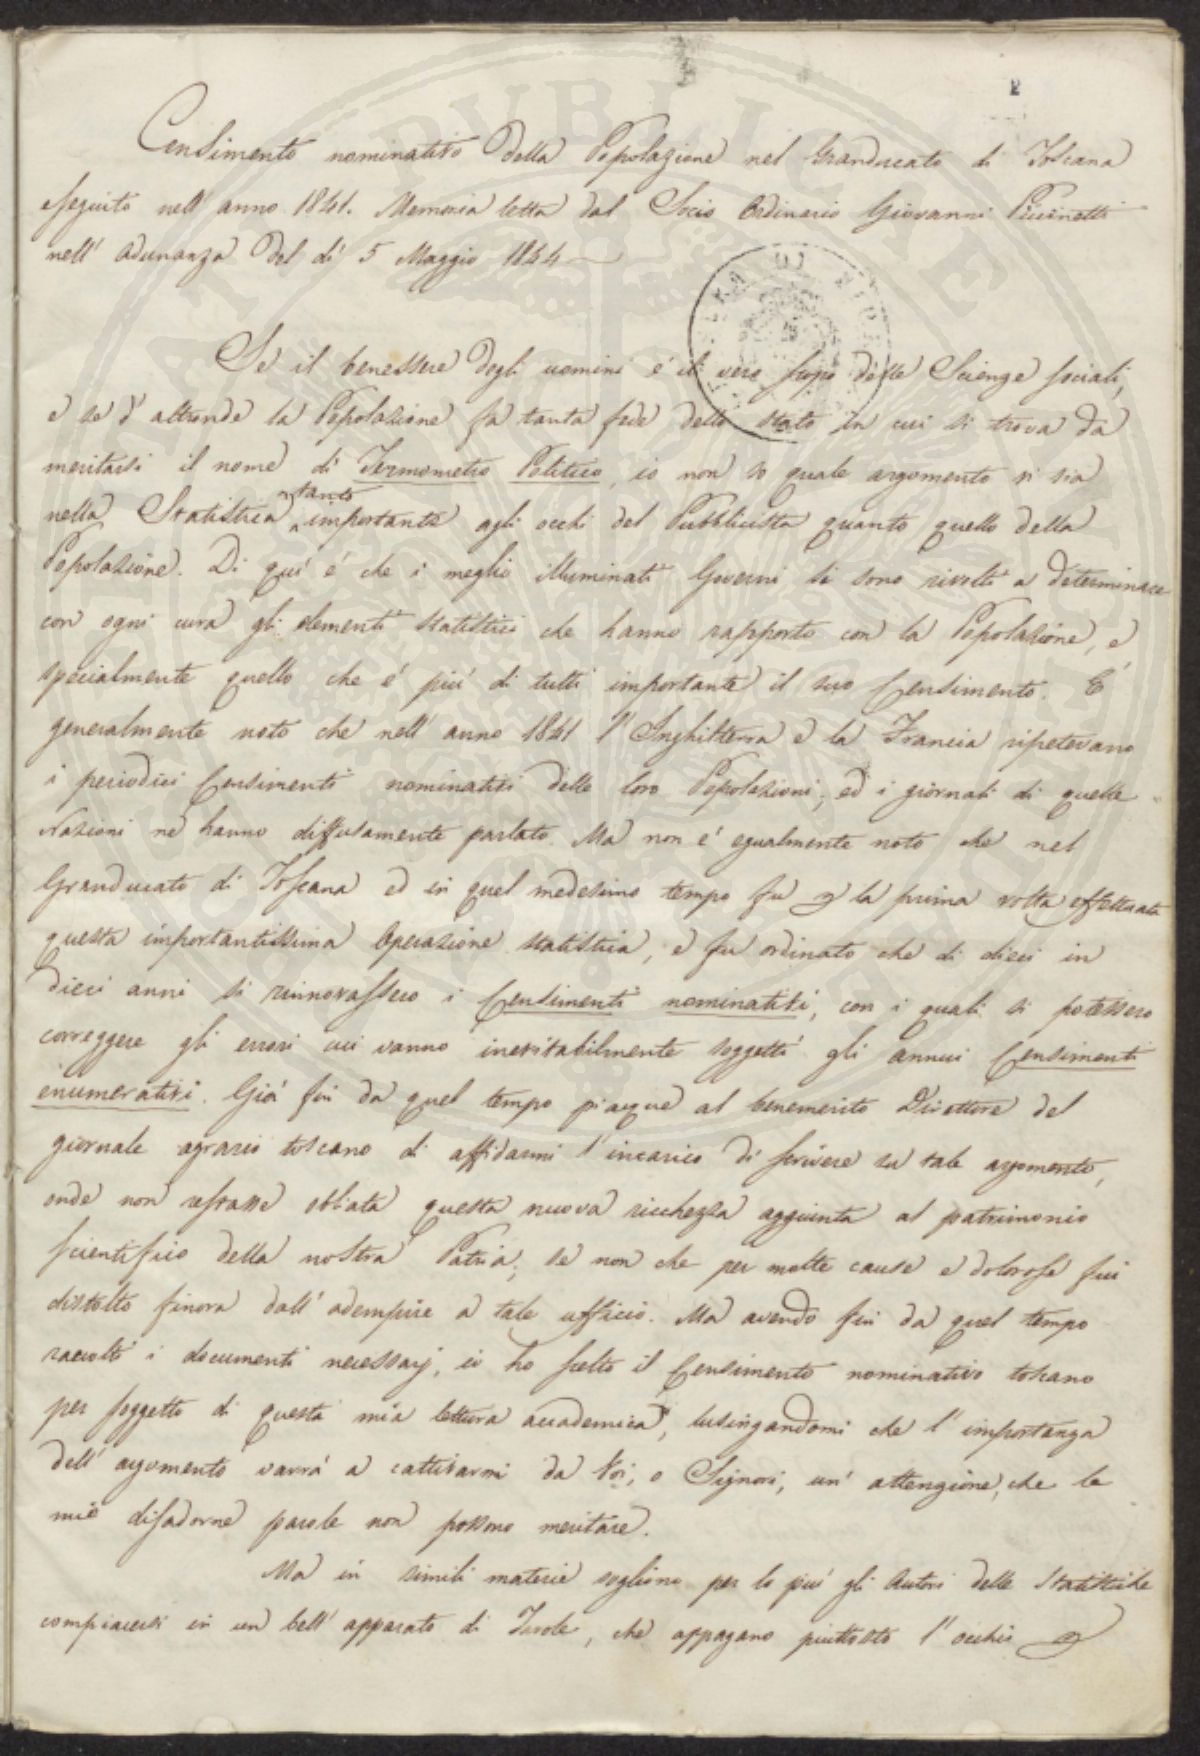 Censimento nominativo della Popolazione nel Granducato di Toscana
eseguito nell'anno 1841. Memoria letta dal Socio Ordinario Giovanni
nell'adunanza del dì 5 Maggio 1844
Se il benessere degli uomini é il vero scopo delle Scienze sociali,
e se d'altronde la Popolazione fa tanta fede dello stato in cui si trova da
meritarsi il nome di Termometro Politico, io non so quale argomento vi sia
nella Statistica tanto importante agli occhi del Pubblicista quanto quello della
Popolazione. Di qui é che i meglio illuminati Governi si sono rivolti a determinare
con ogni cura gli elementi statistici che hanno rapporto con la Popolazione, e
specialmente quello che é piú di tutti importante il suo Censimento. É
generalmente noto che nell'anno 1841 l'Inghilterra e la Francia ripetevano
i periodici Censimenti nominativi delle loro Popolazioni, ed i giornali di quelle
Nazioni ne hanno diffusamente parlato. Ma non é egualmente noto che nel
Granducato di Toscana ed in quel medesimo tempo fu p la prima volta effettuata
questa importantissima Operazione statistica, e fu ordinato che di dieci in
dieci anni si rinnovassero i Censimenti nominativi, con i quali si potessero
correggere gli errori cui vanno inevitabilmente soggetti gli annui Censimenti
enumerativi. Giá fin da quel tempo piacque al benemerito Direttore del
giornale agrario toscano di affidarmi l'incarico di scrivere su tale argomento,
onde non restasse obliata questa nuova ricchezza aggiunta al patrimonio
scientifico della nostra Patria; se non che per molte cause e dolorose fui
distolto finora dall'adempire a tale ufficio. Ma avendo fin da quel tempo
raccolti i documenti necessarj, io ho scelto il Censimento nominativo toscano
per soggetto di questa mia lettura accademica, lusingandomi che l'importanza
dell'argomento varrá a cattivarmi da Voi, o Signori, un'attenzione, che le
mie disadorne parole non possono meritare.
Ma in simili materie sogliono per lo piú gli Autori delle Statistiche
compiacersi in un bell'apparato di Tavole, che appagano piuttosto l'occhio p